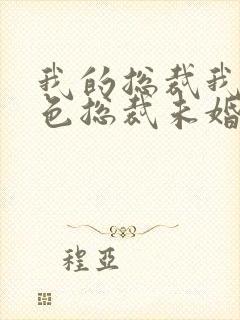 我的总裁我
色总裁未婚
程亚